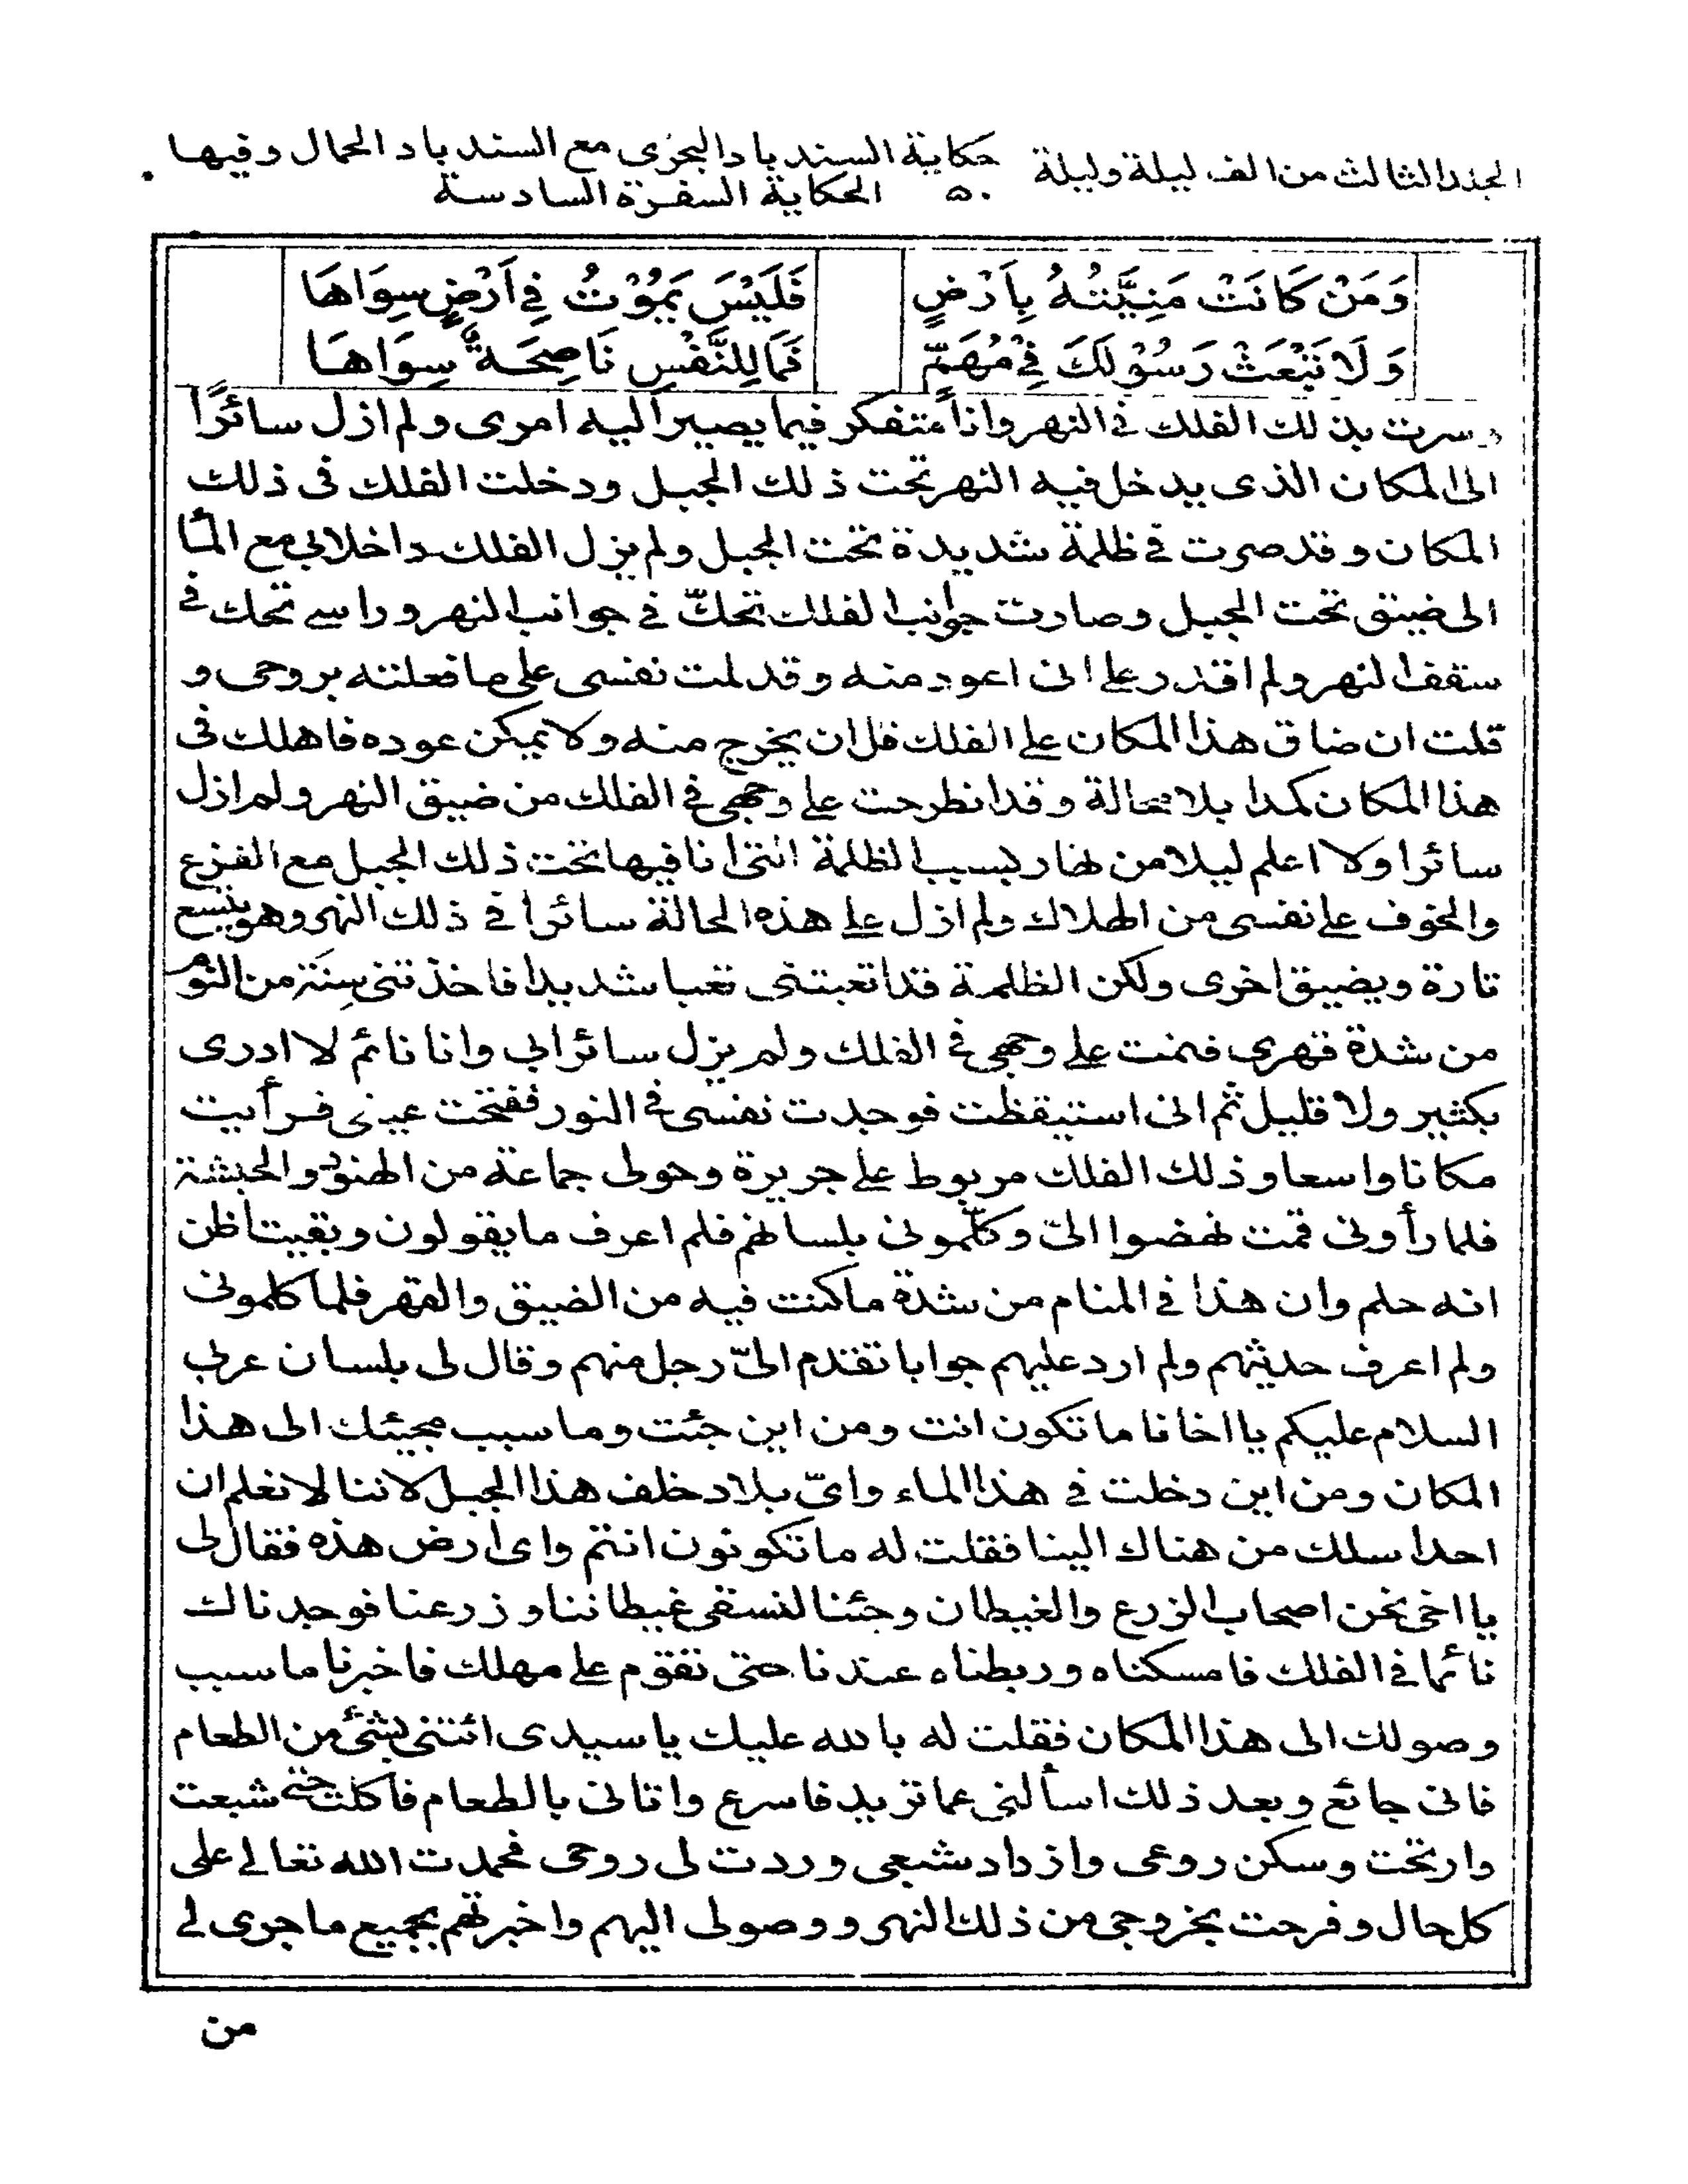 الجلد الثالث من الف ليلة وليلة
حكاية السند باد البحرى مع السند باد الحمال وفيها
٥٠
الحكاية السفرة السادسة
وَمَنْ كَانَتْ مَنِيَّتُهُ بِاَرْضٍ فَلَيْسَ يَمُوْتُ فِي اَرْضٍ سِوَاهَا
وَلَا تَبْعَثْ رَسُوْلَكَ فِيْ مُهِمٍّ فَمَا لِلنَّفْسِ نَاصِحَةٌ سِوَاهَا
وسرت بذلك الفلك في النهر وانا متفكر فيما يصير اليه امرى ولم ازل سائرًا
الى المكان الذى يدخل فيه النهر تحت ذلك الجبل ودخلت الفلك فى ذلك
المكان وقد صرت في ظلمة شديدة تحت الجبل ولم يزل الفلك داخلا بي مع الماء
الى ضيق تحت الجبل وصارت جوانب الفلك تحكّ في جوانب النهر وراسي تحك في
سقف النهر ولم اقدر على انى اعود منه وقد لمت نفسى على ما فعلته بروحى و
قلت ان ضاق هذا المكان على الفلك قل ان يخرج منه ولا يمكن عوده فاهلك فى
هذا المكان كمدا بلا محالة وقد انطرحت على وجهي في الفلك من ضيق النهر ولم ازل
سائرا ولا اعلم ليلا من نهار بسبب الظلمة التى انا فيها تحت ذلك الجبل مع الفزع
والخوف على نفسى من الهلاك ولم ازل على هذه الحالة سائرا في ذلك النهر وهو يتسع
تارة ويضيق اخرى ولكن الظلمة قد اتعبتنى تعبا شديدا فاخذتنى سِنَة من النوم
من شدة قهري فنمت على وجهي في الفلك ولم يزل سائرا بي وانا نائم لا ادرى
بكثير ولا قليل ثم انى استيقظت فوجدت نفسى في النور ففتحت عينى فرأيت
مكانا واسعا وذلك الفلك مربوط على جزيرة وحولى جماعة من الهنود والحبشة
فلما رأونى قمت نهضوا الىّ وكلّمونى بلسانهم فلم اعرف ما يقولون وبقيت اظن
انه حلم وان هذا في المنام من شدة ما كنت فيه من الضيق والقهر فلما كلمونى
ولم اعرف حديثهم ولم ارد عليهم جوابا تقدم الىّ رجل منهم وقال لى بلسان عربي
السلام عليكم يا اخانا ما تكون انت ومن اين جئت وما سبب مجيئك الى هذا
المكان ومن اين دخلت في هذا الماء واىّ بلاد خلف هذا الجبل لاننا لا نعلم ان
احدا سلك من هناك الينا فقلت له ما تكونون انتم واى ارض هذه فقال لى
يا اخى نحن اصحاب الزرع والغيطان وجئنا لنسقى غيطاننا وزرعنا فوجدناك
نائما في الفلك فامسكناه وربطناه عندنا حتى تقوم على مهلك فاخبرنا ما سبب
وصولك الى هذا المكان فقلت له بالله عليك يا سيدى ائتنى بشئ من الطعام
فانى جائع وبعد ذلك اسألنى عما تريد فاسرع واتانى بالطعام فاكلت حتى شبعت
وارتحت وسكن روعى وازداد شبعى وردت لى روحى فحمدت الله تعالى على
كل حال وفرحت بخروجى من ذلك النهر ووصولى اليهم واخبرتهم بجميع ما جرى لي
من